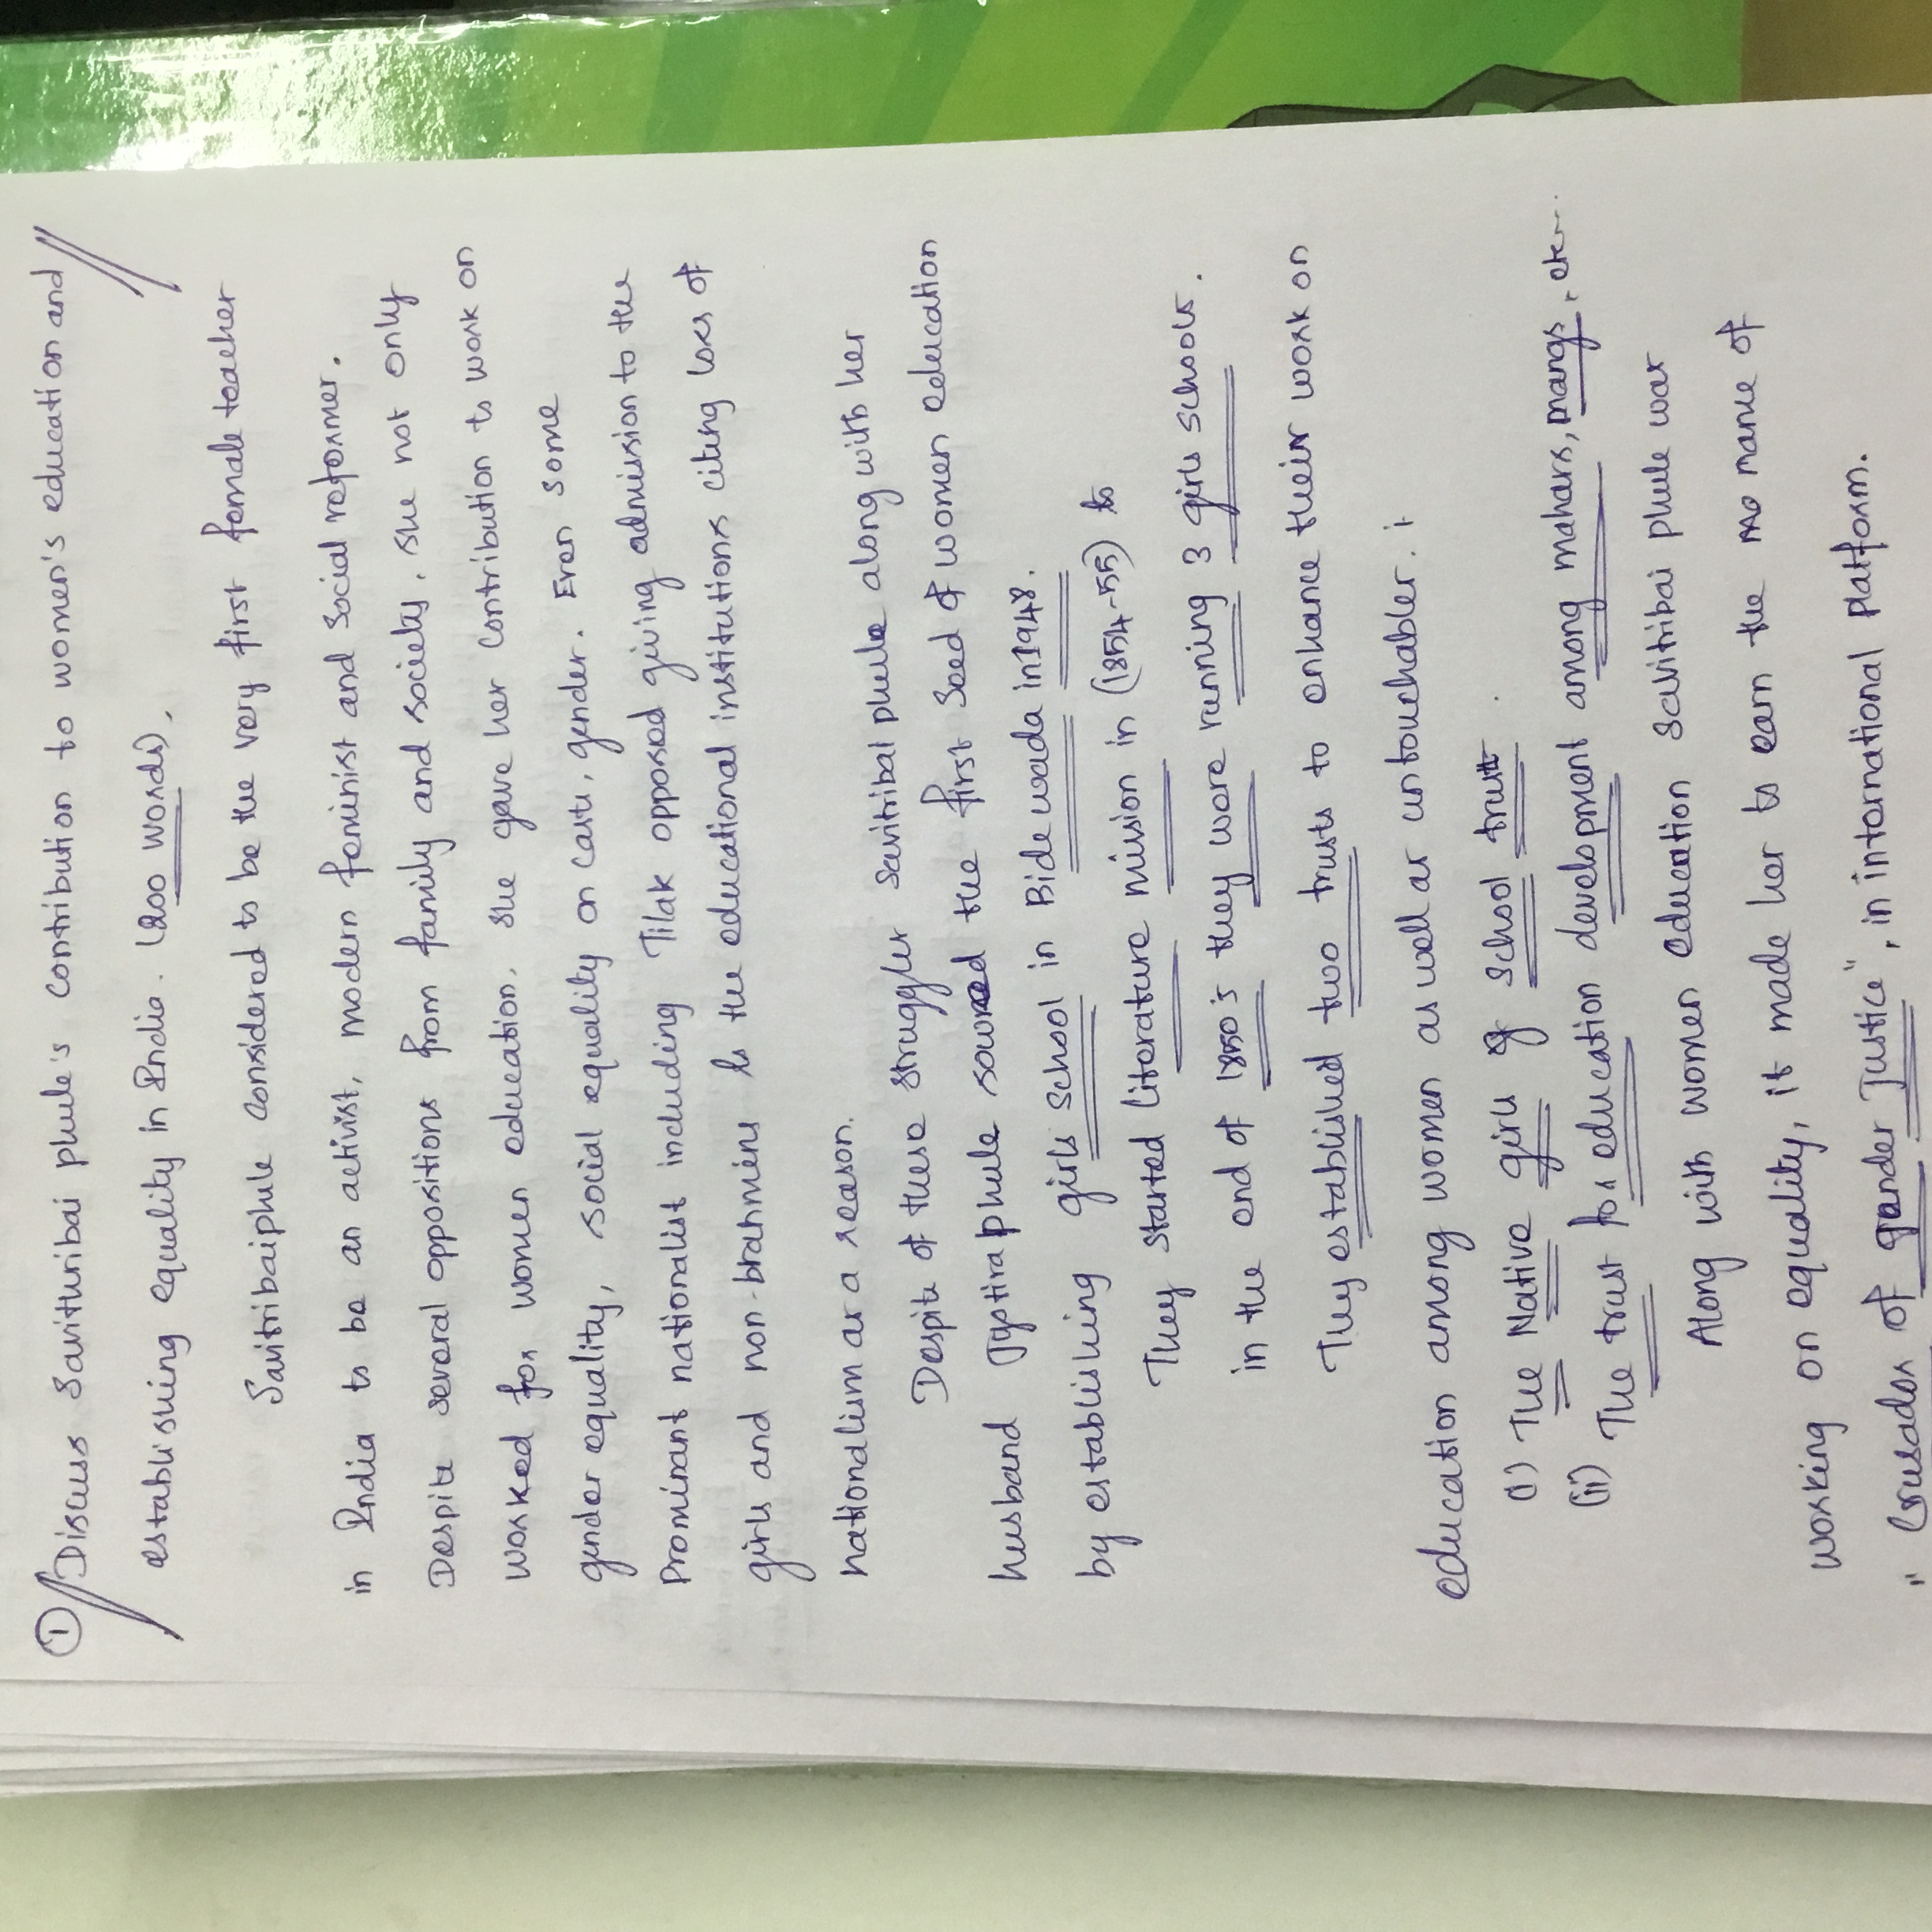 ① Discuss Savituribai phule's contribution to women's education and
establishing equality in India. (200 words).
Savitribaiphule considered to be the very first female teacher
in India to be an activist, modern feminist and social reformer.
Despite several oppositions from family and society, she not only
worked for women education, she gave her contribution to work on
gender equality, social equality on caste, gender. Even some
Prominant nationalist including Tilak opposed giving admission to the
girls and non-brahmins to the educational institutions citing loss of
nationalism as a reason.
Despite of these struggles savitribai phule along with her
husband Jyotiraphule sowed the first seed of women education
by establishing girls school in Bide wada in 1948.
They started literature mission in (1854-55) to
in the end of 1850's they were running 3 girls schools.
They established two trusts to enhance their work on
education among women as well as untouchables.
(i) The Native girls school trust
(ii) The trust for education development among mahars, mangs, etc...
Along with women education savitribai phule was
working on equality, it made her to earn the name of
" Crusador of gender Justice", in international platform.